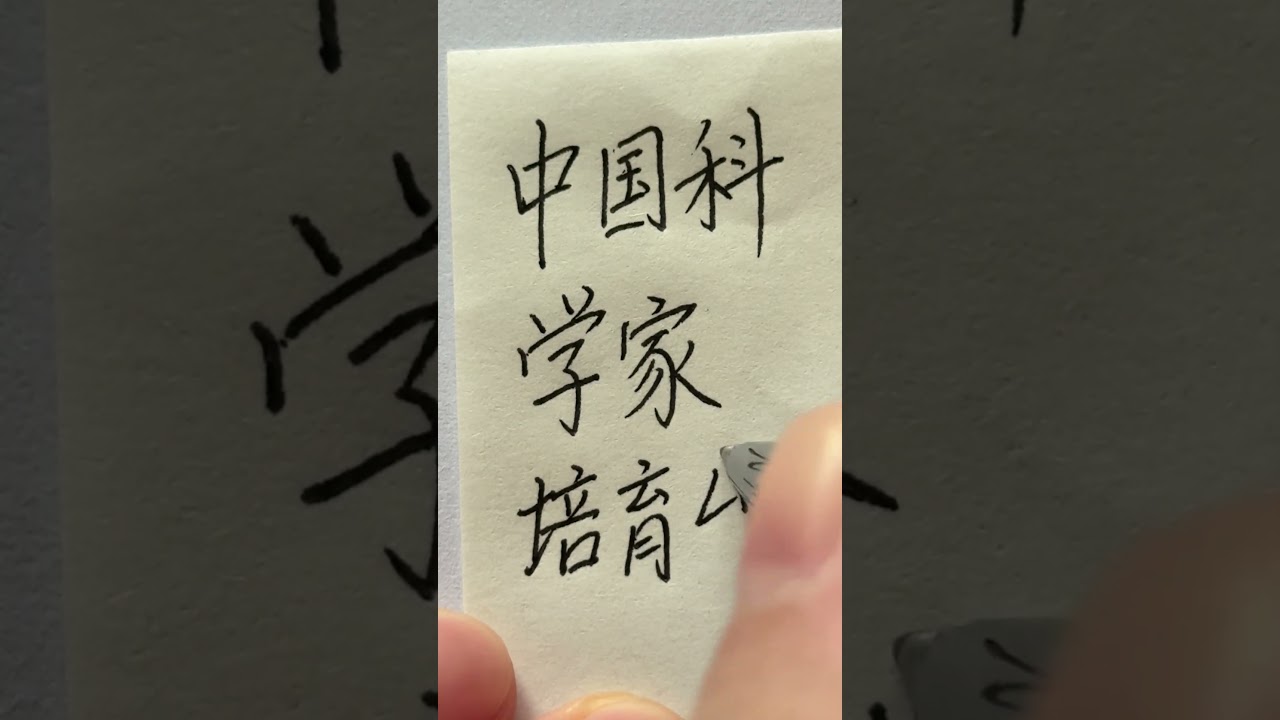 中国科
学家
培育